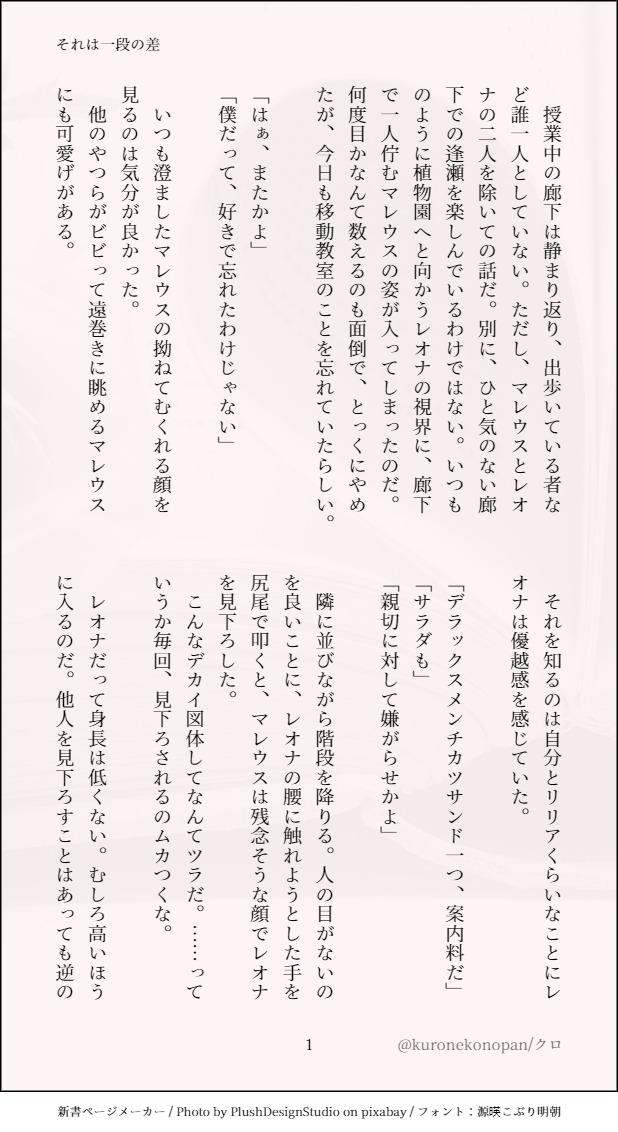 それは一段の差
　授業中の廊下は静まり返り、出歩いている者な
ど誰一人としていない。ただし、マレウスとレオ
ナの二人を除いての話だ。別に、ひと気のない廊
下での逢瀬を楽しんでいるわけではない。いつも
のように植物園へと向かうレオナの視界に、廊下
で一人佇むマレウスの姿が入ってしまったのだ。
何度目かなんて数えるのも面倒で、とっくにやめ
たが、今日も移動教室のことを忘れていたらしい。
「はぁ、またかよ」
「僕だって、好きで忘れたわけじゃない」
　いつも澄ましたマレウスの拗ねてむくれる顔を
見るのは気分が良かった。
　他のやつらがビビって遠巻きに眺めるマレウス
にも可愛げがある。
　それを知るのは自分とリリアくらいなことにレ
オナは優越感を感じていた。
「デラックスメンチカツサンド一つ、案内料だ」
「サラダも」
「親切に対して嫌がらせかよ」
　隣に並びながら階段を降りる。人の目がないの
を良いことに、レオナの腰に触れようとした手を
尻尾で叩くと、マレウスは残念そうな顔でレオナ
を見下ろした。
　こんなデカイ図体してなんてツラだ。……って
いうか毎回、見下ろされるのムカつくな。
　レオナだって身長は低くない。むしろ高いほう
に入るのだ。他人を見下ろすことはあっても逆の
1
@kuronekonopan/クロ
新書ページメーカー / Photo by PlushDesignStudio on pixabay / フォント：源暎こぶり明朝